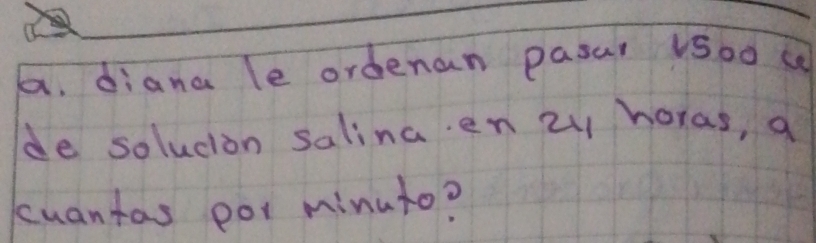 a. diana le ordenan pasar 1500 cc
de solución salina.en 24 horas, a
cuantas por minuto?